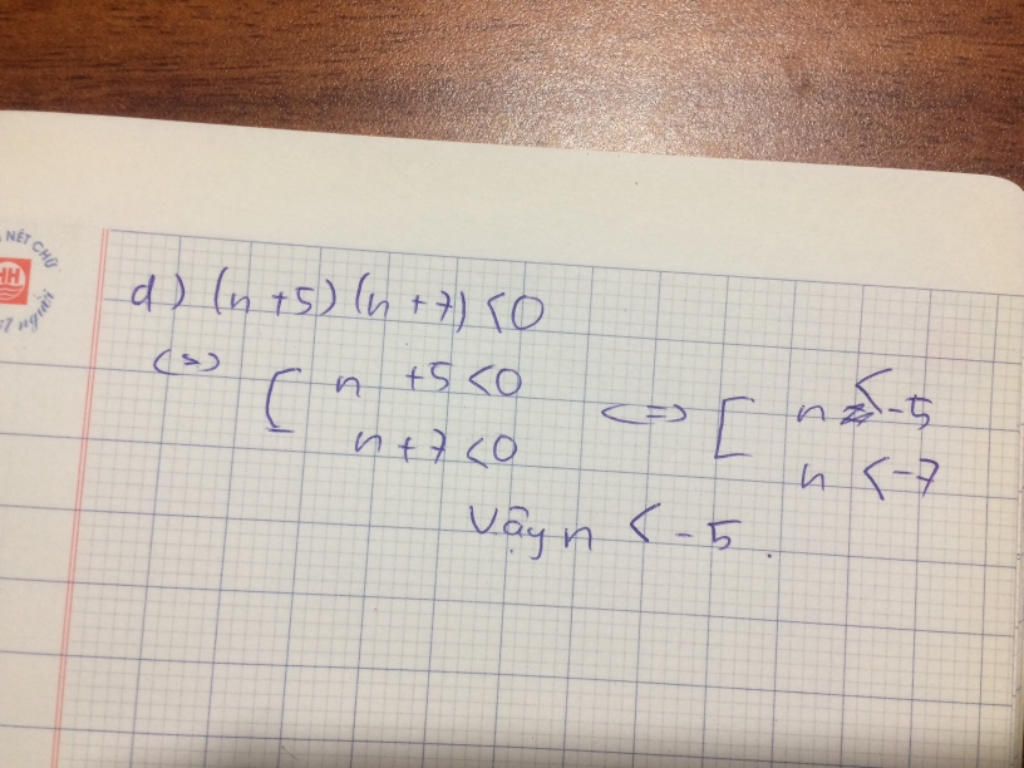 NÉT CHỮ
HH
người
d) (n +5) (n +7) <0
<=> [ n +5 <0 <=> [ n < -5
n +7 <0 n < -7
Vậy n < -5.